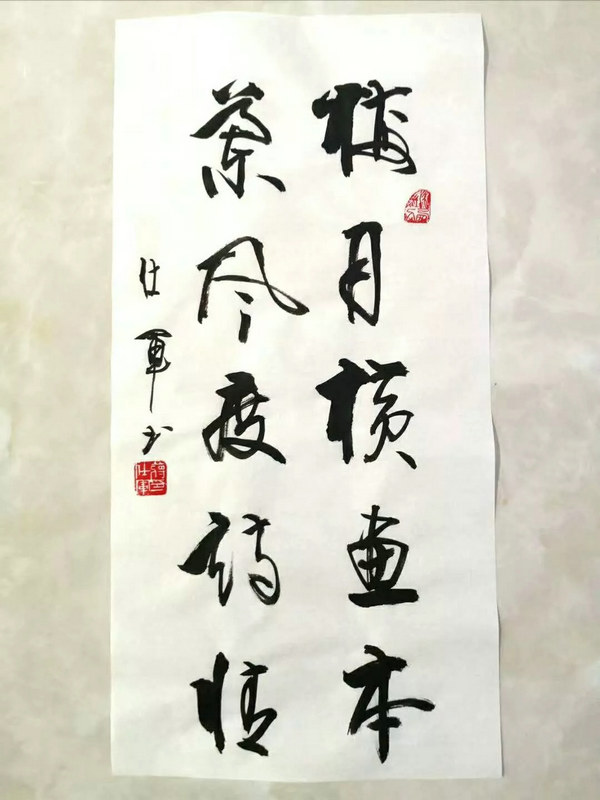 梅月横画本
蘭风度诗情
仕軍书